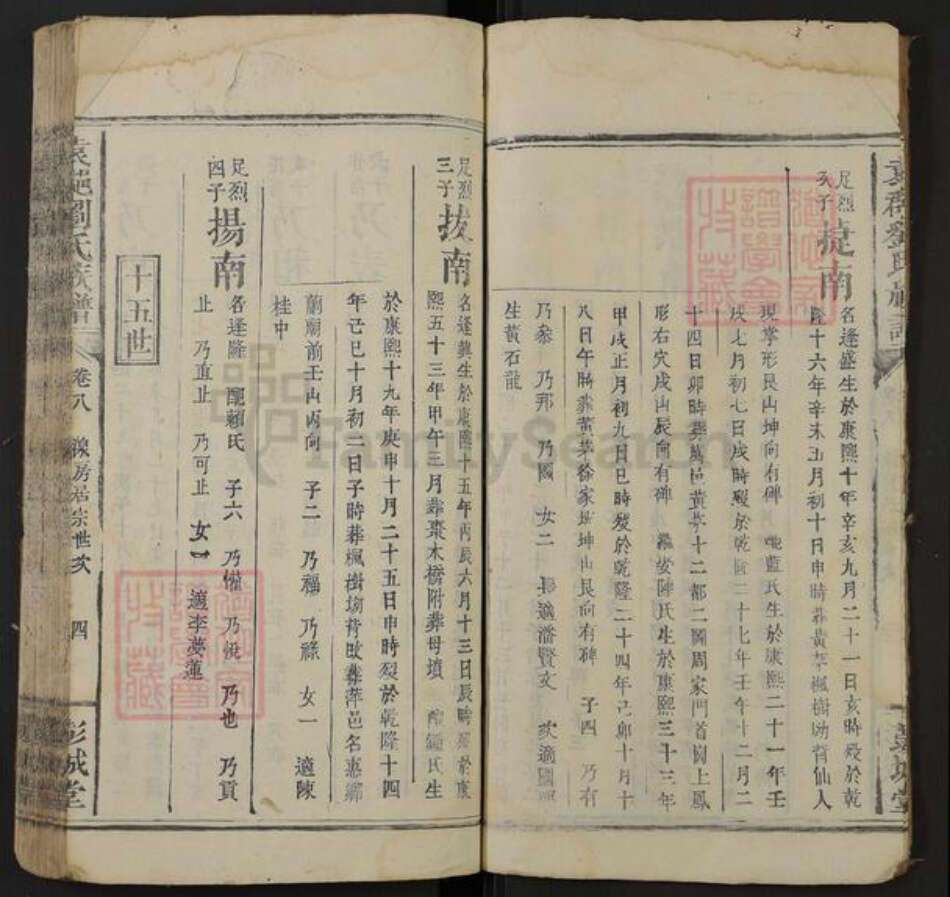 足烈次子
捷南
名逢盛生於康熙十年辛亥九月二十一日亥時殁於乾
隆十六年辛未五月初十日申時葬黃茅楓樹坳背仙人
現掌形艮山坤向有碑 藍氏生於康熙二十一年壬
戌七月初七日戌時殁於乾隆二十七年壬午十二月二
十四日卯時葬萬邑黃茅十二都二圖周家門首崗上鳳
形右穴戌山辰向有碑 陳氏生於康熙三十三年
甲戌正月初九日巳時殁於乾隆二十四年己卯十月十
八日午時葬黃茅徐家坳坤山艮向有碑 子四 乃有
乃參 乃邦 乃國 女二 長適潘賢文 次適
生黃石龍
足烈三子
拔南
名逢興生於康熙十五年丙辰六月十三日辰時殁於康
熙五十三年甲午三月葬棗木橋附葬母墳 鍾氏生
於康熙十九年庚申十月二十五日申時殁於乾隆十四
年己巳十月初二日子時葬楓樹坳背改葬萍邑名惠鄉
蘭廟前壬山丙向 子二 乃福 乃祿 女一 適陳
桂中
足烈四子
揚南
名逢隆 配賴氏 子六 乃僅 乃悅 乃也 乃貫
止 乃直止 乃可止 女一 適李夢蓮
十五世
劉氏族譜
卷八
世次
四
彭城堂
FamilySearch